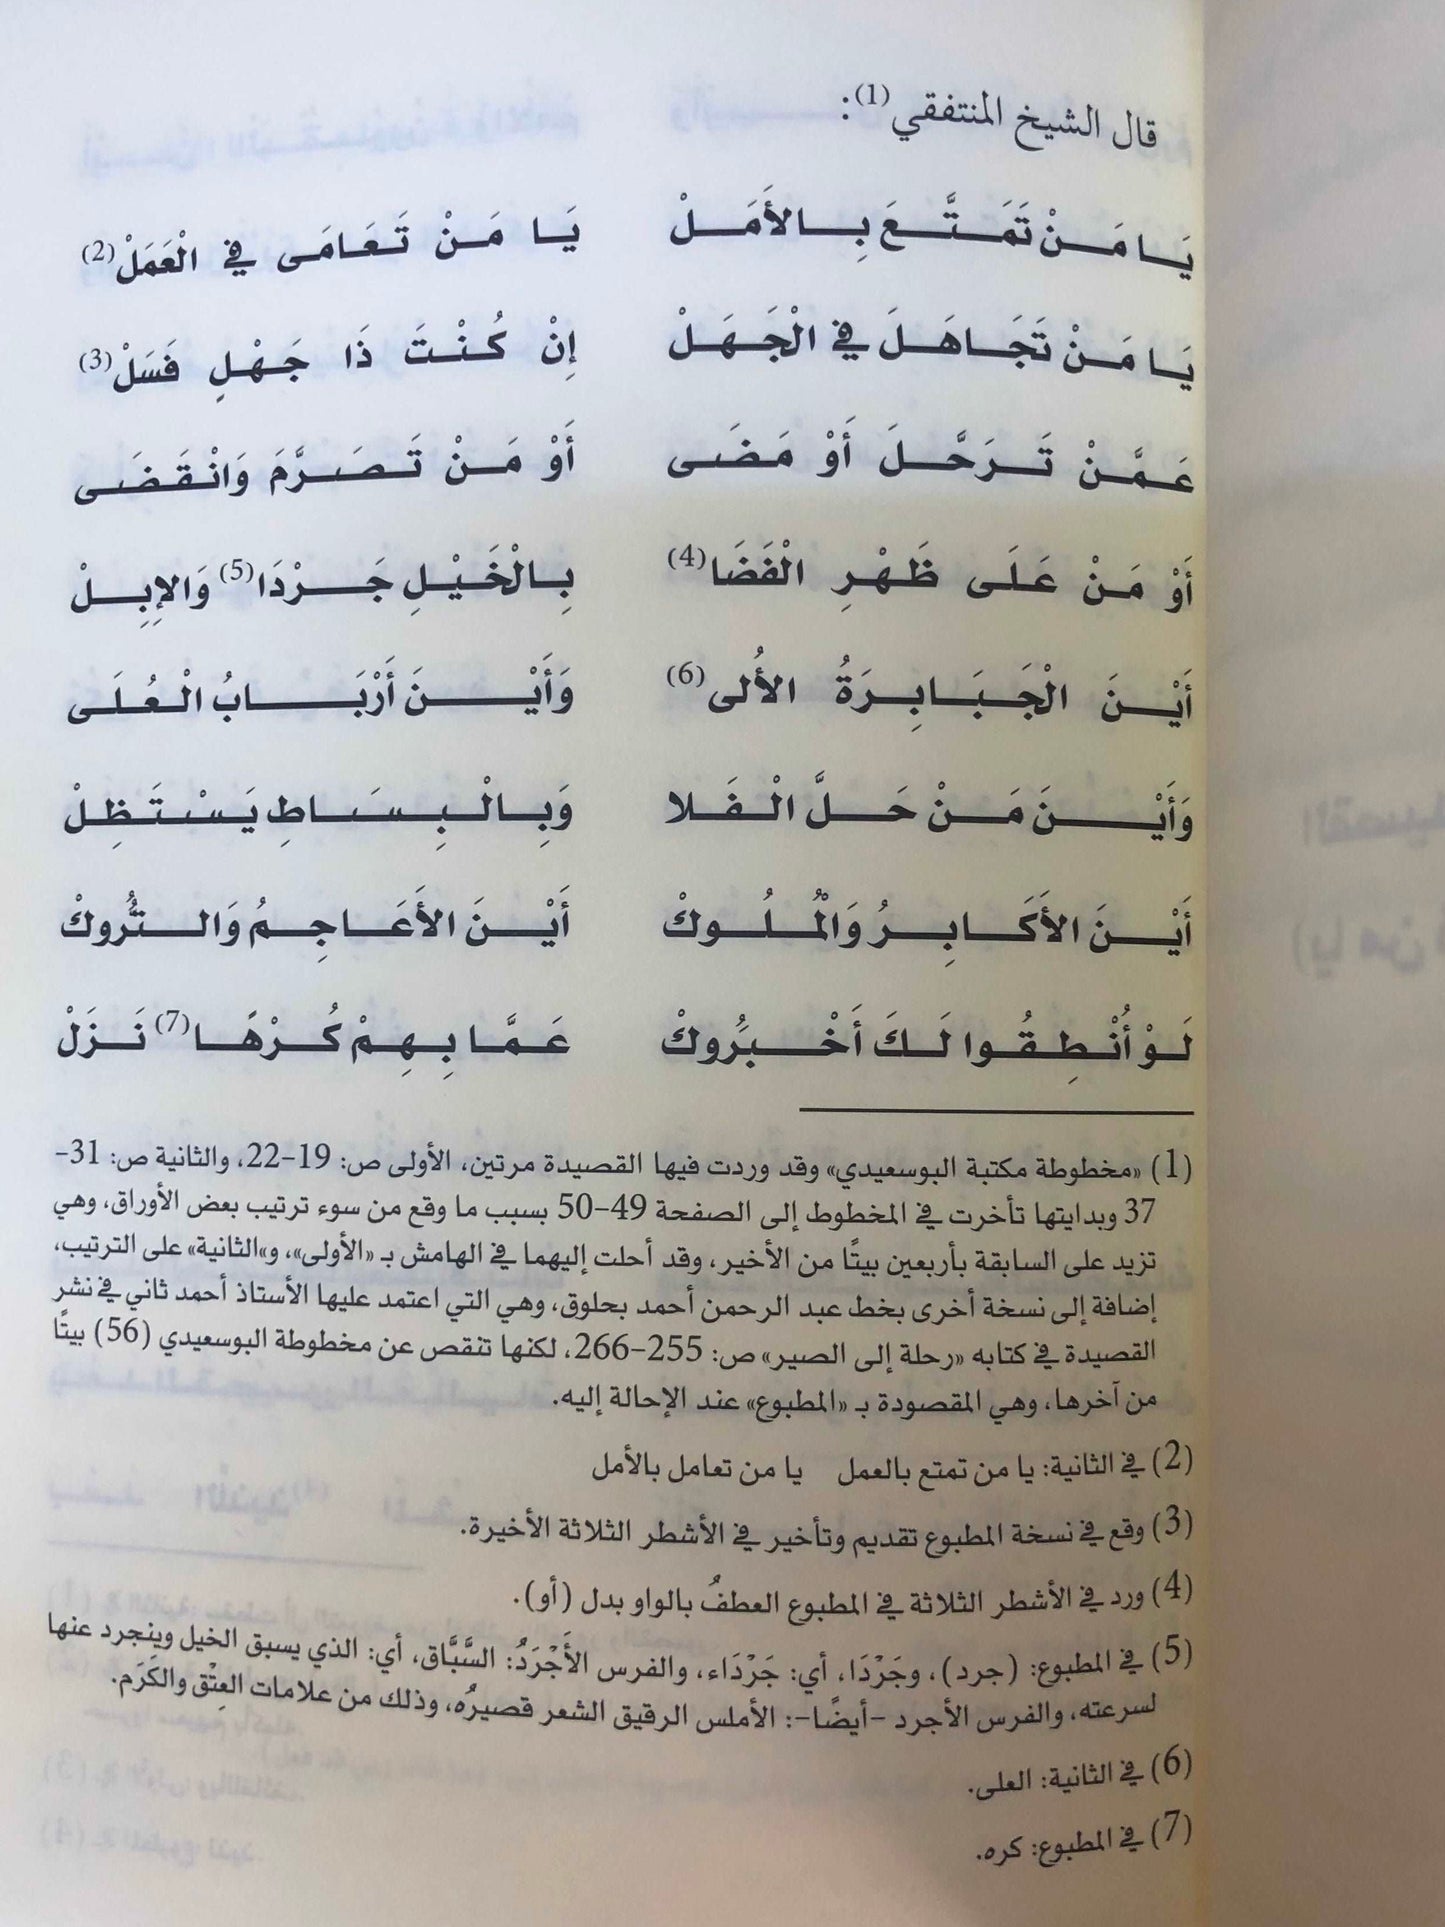 قال الشيخ المنتفقي(1):
يَا مَنْ تَمَتَّعَ بِالأَمَلْ يَا مَنْ تَعَامَى فِي الْعَمَلْ(2)
يَا مَنْ تَجَاهَلَ فِي الْجَهَلْ إِنْ كُنْتَ ذَا جَهْلٍ فَسَلْ(3)
عَمَّنْ تَرَحَّلَ أَوْ مَضَى أَوْ مَنْ تَصَرَّمَ وَانْقَضَى
أَوْ مَنْ عَلَى ظَهْرِ الْفَضَا(4) بِالْخَيْلِ جَرْدَا(5) وَالإِبِلْ
أَيْنَ الْجَبَابِرَةُ الأُلى(6) وَأَيْنَ أَرْبَابُ الْعُلَى
وَأَيْنَ مَنْ حَلَّ الْفَلا وَبِالْبِسَاطِ يَسْتَظِلْ
أَيْنَ الأَكَابِرُ وَالْمُلُوكْ أَيْنَ الأَعَاجِمُ وَالتُّرُوكْ
لَوْ أُنْطِقُوا لَكَ أَخْبَرُوكْ عَمَّا بِهِمْ كُرْهًا(7) نَزَلْ
(1) «مخطوطة مكتبة البوسعيدي» وقد وردت فيها القصيدة مرتين، الأولى ص: 19-22، والثانية ص: 31-
37 وبدايتها تأخرت في المخطوط إلى الصفحة 49-50 بسبب ما وقع من سوء ترتيب بعض الأوراق، وهي
تزيد على السابقة بأربعين بيتًا من الأخير، وقد أحلت إليهما في الهامش بـ «الأولى»، و«الثانية» على الترتيب،
إضافة إلى نسخة أخرى بخط عبد الرحمن أحمد بحلوق، وهي التي اعتمد عليها الأستاذ أحمد ثاني في نشر
القصيدة في كتابه «رحلة إلى الصير» ص: 255-266، لكنها تنقص عن مخطوطة البوسعيدي (56) بيتًا
من آخرها، وهي المقصودة بـ «المطبوع» عند الإحالة إليه.
(2) في الثانية: يا من تمتع بالعمل يا من تعامل بالأمل
(3) وقع في نسخة المطبوع تقديم وتأخير في الأشطر الثلاثة الأخيرة.
(4) ورد في الأشطر الثلاثة في المطبوع العطفُ بالواو بدل (أو).
(5) في المطبوع: (جرد)، وجَرْدَا، أي: جَرْدَاء، والفرس الأَجْرَدُ: السَّبَّاق، أي: الذي يسبق الخيل وينجرد عنها
لسرعته، والفرس الأجرد -أيضًا-: الأملس الرقيق الشعر قصيرُه، وذلك من علامات العِتْق والكَرَم.
(6) في الثانية: العلى.
(7) في المطبوع: كره.